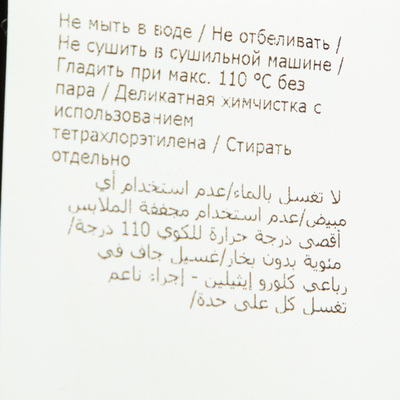 Не мыть в воде / Не отбеливать /
Не сушить в сушильной машине /
Гладить при макс. 110 °C без
пара / Деликатная химчистка с
использованием
тетрахлорэтилена / Стирать
отдельно
لا تغسل بالماء/عدم استخدام أي
مبيض/عدم استخدام مجففة الملابس
أقصى درجة حرارة للكوي 110 درجة/
مئوية بدون بخار/غسيل جاف في
رباعي كلورو إيثيلين - إجراء ناعم
تغسل كل على حدة/